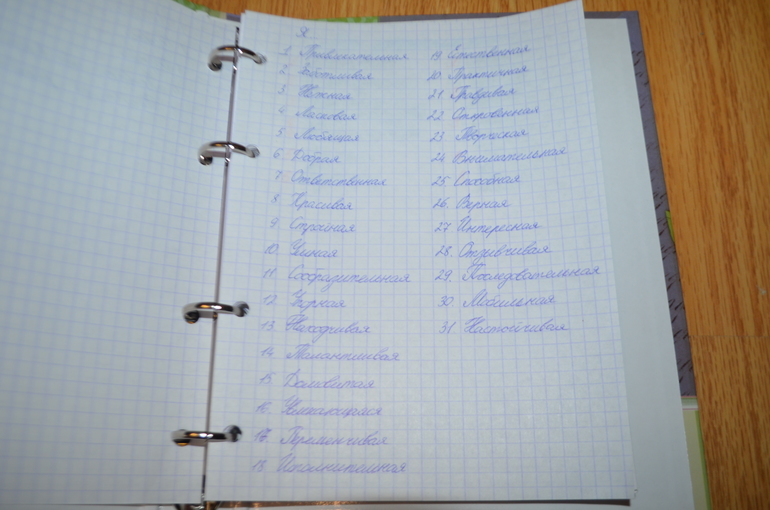 Я
1. Привлекательная
2. Заботливая
3. Нежная
4. Ласковая
5. Любящая
6. Добрая
7. Ответственная
8. Красивая
9. Стройная
10. Умная
11. Сообразительная
12.
13. Находчивая
14. Талантливая
15. Домовитая
16.
17. Переменчивая
18. Исполнительная
19. Естественная
20. Практичная
21. Правдивая
22. Откровенная
23. Творческая
24. Внимательная
25. Способная
26. Верная
27. Интересная
28. Отзывчивая
29. Последовательная
30. Мобильная
31. Настойчивая